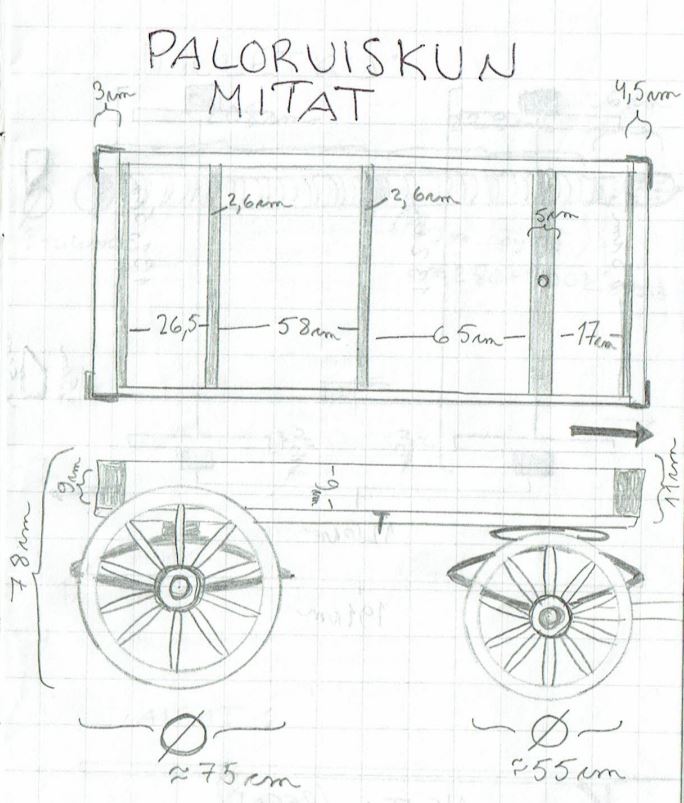 PALORUISKUN
MITAT
3cm
4,5cm
2,6cm
2,6cm
5cm
26,5
58cm
65cm
17cm
9cm
9cm
11cm
78cm
Ø
≈75cm
Ø
≈55cm